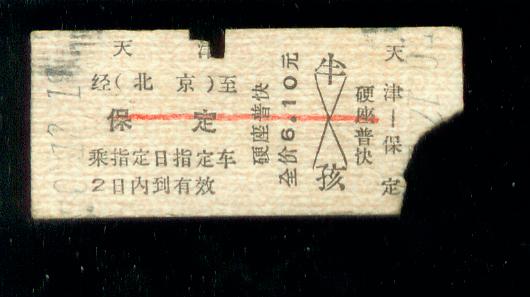 天 津
经(北 京)至
保 定
乘指定日指定车
2日内到有效
硬座普快
全价6.10元
半
孩
硬座普快
天津—保定